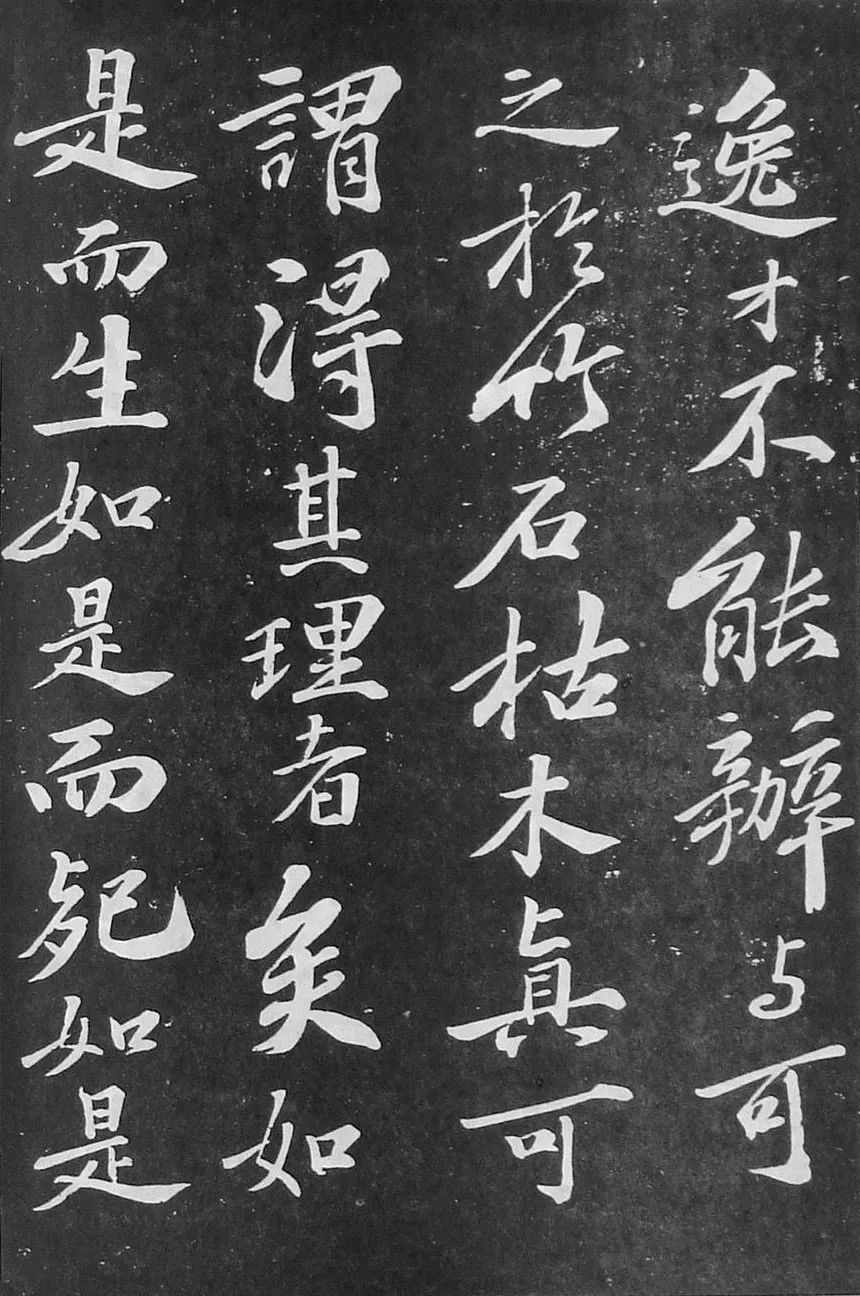 逸才不能辦与可
之於竹石枯木真可
謂得其理者矣如
是而生如是而死如是